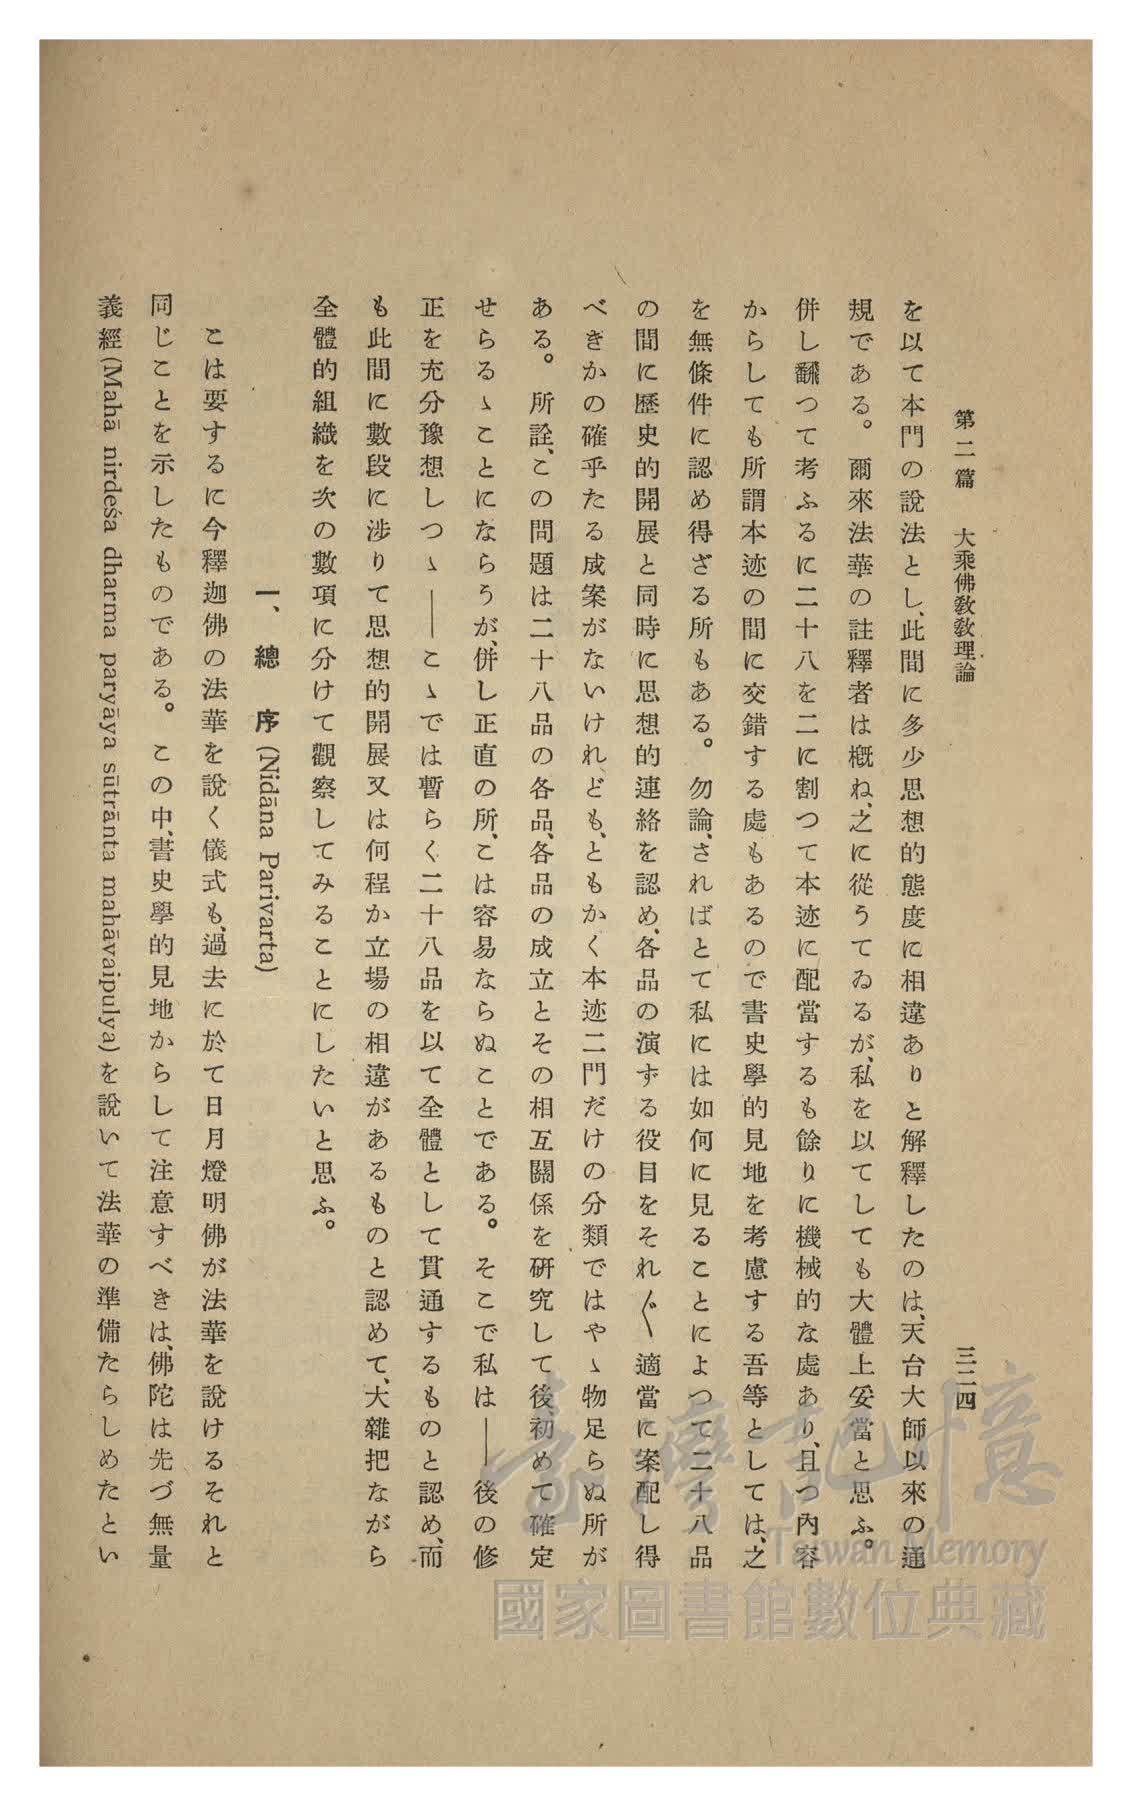 第二篇　大乘佛敎敎理論
三二四
を以て本門の說法とし、此間に多少思想的態度に相違ありと解釋したのは、天台大師以來の通
規である。爾來法華の註釋者は槪ね、之に從うてゐるが、私を以てしても大體上妥當と思ふ。
併し飜つて考ふるに二十八を二に割つて本迹に配當するも餘りに機械的な處あり、且つ內容
からしても所謂本迹の間に交錯する處もあるので書史學的見地を考慮する吾等としては、之
を無條件に認め得ざる所もある。勿論、さればとて私には如何に見ることによつて二十八品
の間に歷史的開展と同時に思想的連絡を認め、各品の演ずる役目をそれ〴〵適當に案配し得
べきかの確乎たる成案がないけれども、ともかく本迹二門だけの分類ではやゝ物足らぬ所が
ある。所詮、この問題は二十八品の各品、各品の成立とその相互關係を硏究して後、初めて確定
せらるゝことにならうが、併し正直の所、こは容易ならぬことである。そこで私は——後の修
正を充分豫想しつゝ——こゝでは暫らく二十八品を以て全體として貫通するものと認め、而
も此間に數段に涉りて思想的開展又は何程か立場の相違があるものと認めて、大雜把ながら
全體的組織を次の數項に分けて觀察してみることにしたいと思ふ。
一、總　序 (Nidāna Parivarta)
こは要するに今釋迦佛の法華を說く儀式も、過去に於て日月燈明佛が法華を說けるそれと
同じことを示したものである。この中、書史學的見地からして注意すべきは、佛陀は先づ無量
義經 (Mahā nirdeśa dharma paryāya sūtrānta mahāvaipulya) を說いて法華の準備たらしめたとい
臺灣記憶
Taiwan Memory
國家圖書館數位典藏